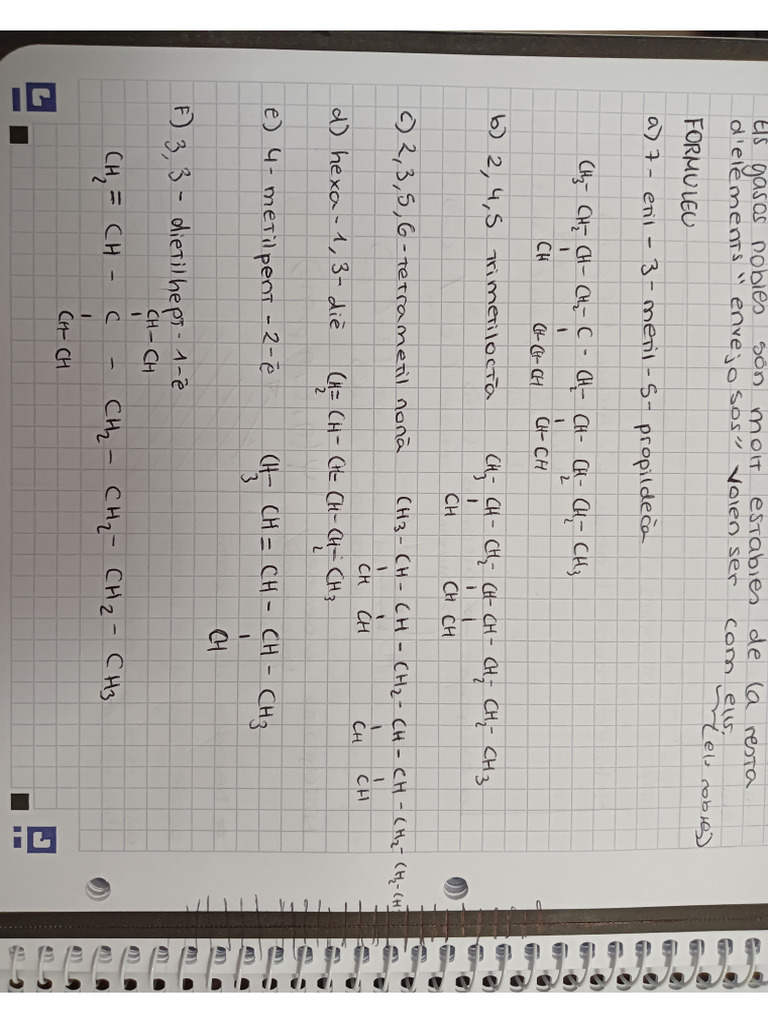 Els gasos nobles són molt estables de la resta
d'elements "envejosos" volen ser com ells.
(els nobles)
FORMULEU
a) 7-etil-3-metil-5-propildecà
CH3-CH2-CH-CH2-C-CH2-CH-CH2-CH2-CH3
CH CH-CH-CH CH-CH
b) 2,4,5 trimetiloctà CH3-CH-CH2-CH-CH-CH2-CH2-CH3
CH CH CH
c) 2,3,5,6-tetrametilnonà CH3-CH-CH-CH2-CH-CH-CH2-CH2-CH
CH CH CH CH
d) hexa-1,3-diè CH2=CH-CH=CH-CH2-CH3
e) 4-metilpent-2-è CH3-CH=CH-CH-CH3
CH
F) 3,3-dietilhept-1-è
CH-CH
CH2=CH-C-CH2-CH2-CH2-CH3
CH-CH